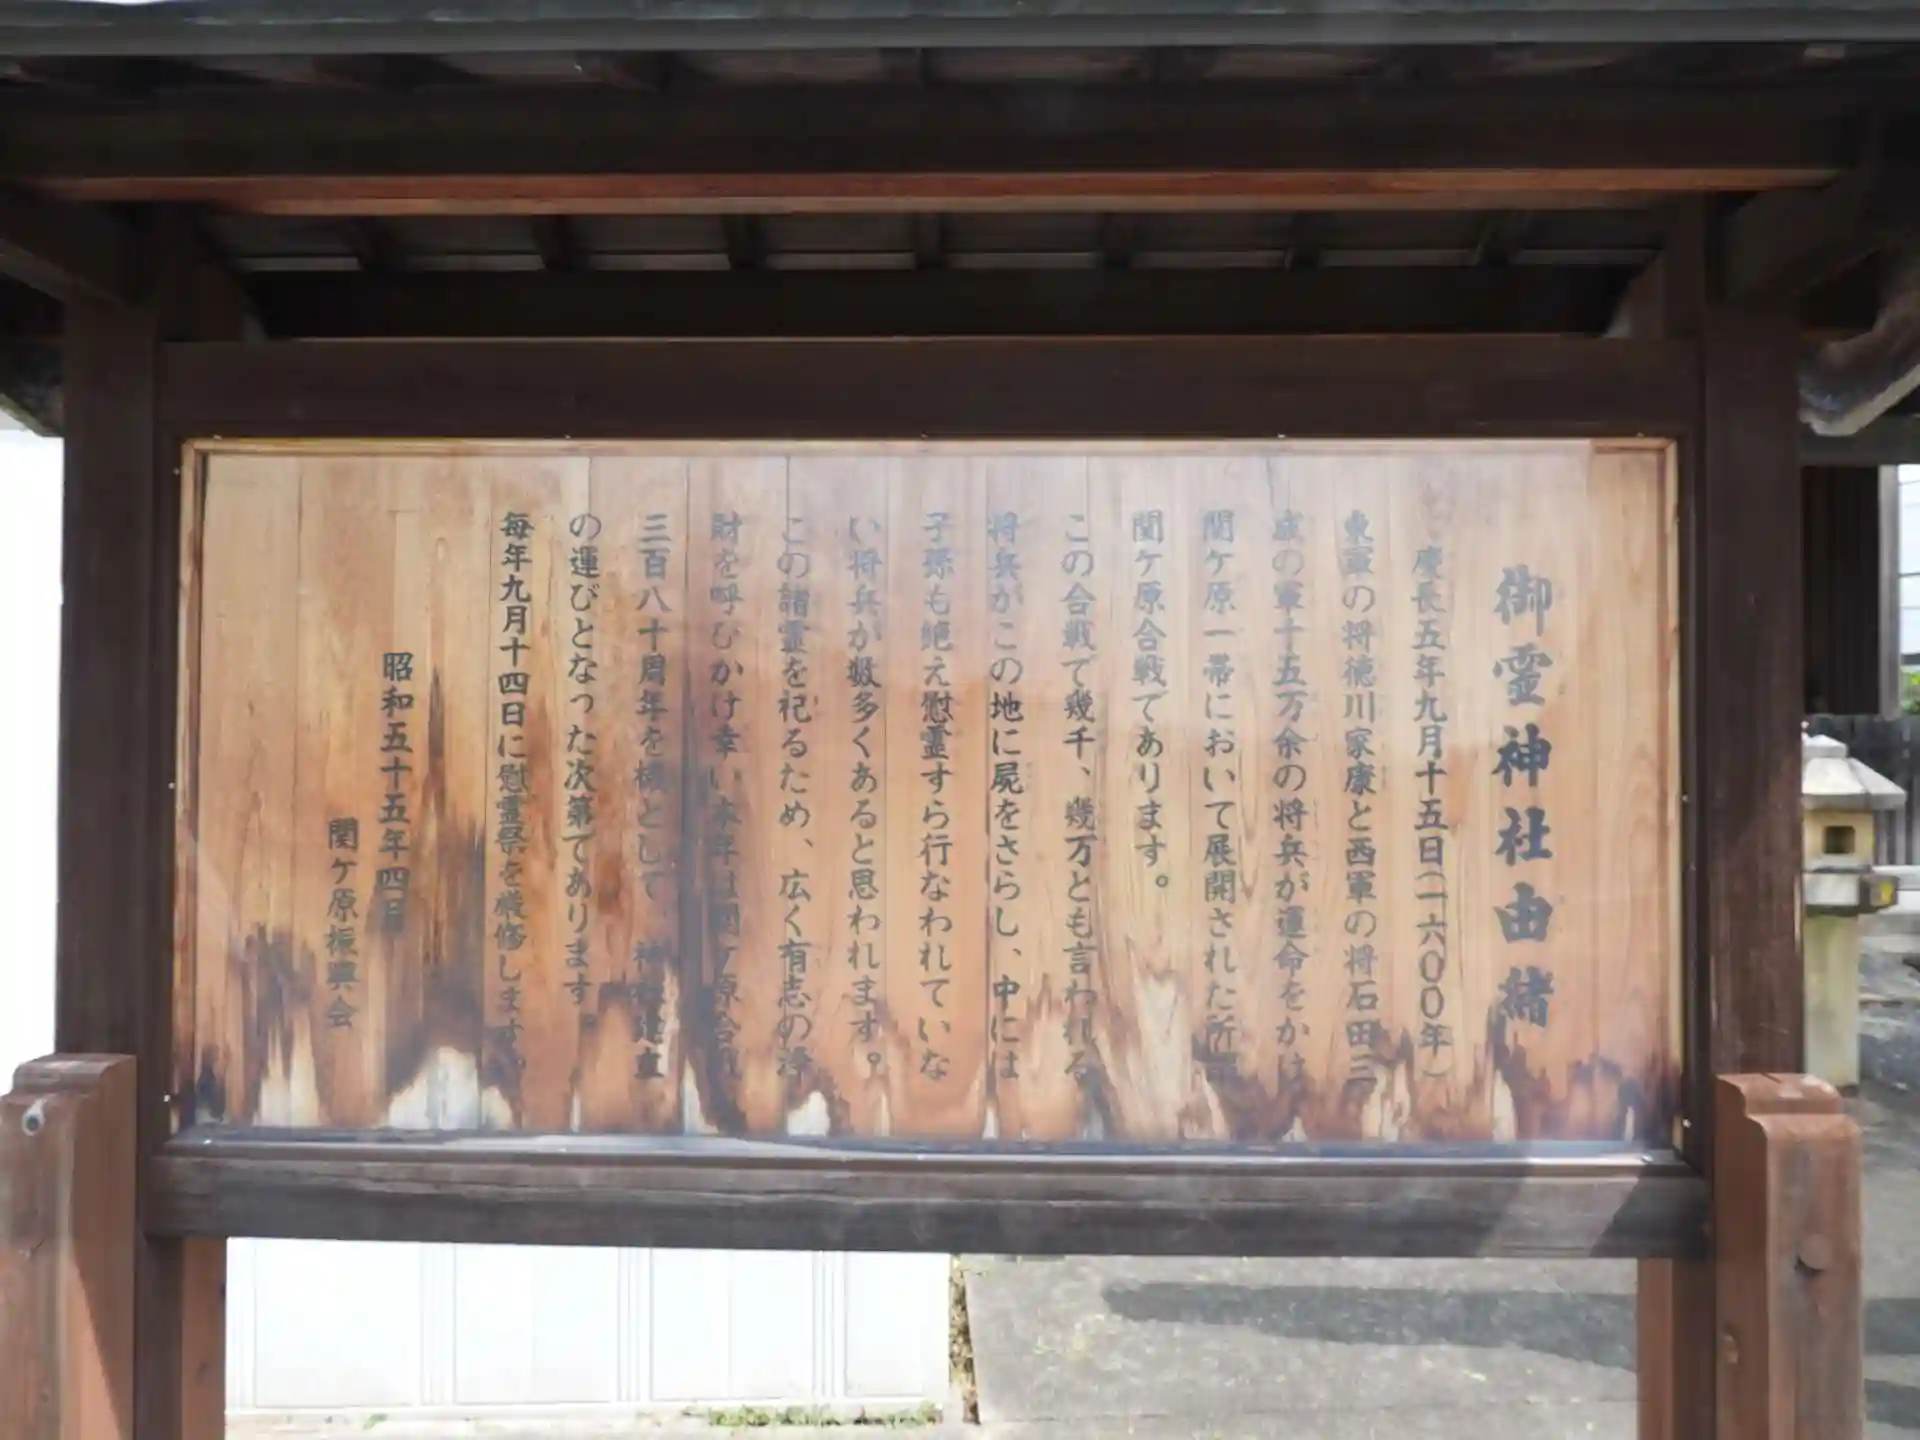 御霊神社由緒
慶長五年九月十五日(一六〇〇年)
東軍の将徳川家康と西軍の将石田三
成の軍十五万余の将兵が運命をかけ
関ケ原一帯において展開された所謂
関ケ原合戦であります。
この合戦で幾千、幾万とも言われる
将兵がこの地に屍をさらし、中には
子孫も絶え慰霊すら行なわれていな
い将兵が数多くあると思われます。
この諸霊を祀るため、広く有志の浄
財を呼びかけ幸い本年は関ケ原合戦
三百八十周年を機として、神社建立
の運びとなった次第であります。
毎年九月十四日に慰霊祭を厳修します。
昭和五十五年四月
関ケ原振興会